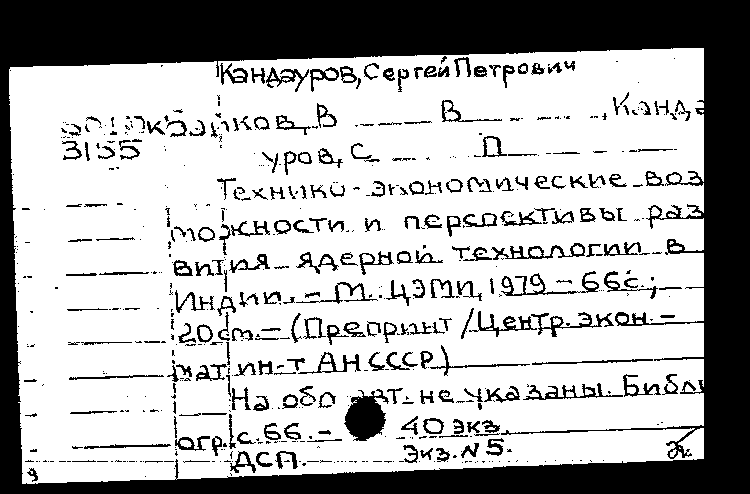 Кандауров, Сергей Петрович
В В , Канда
3155 уров, С П
Технико-экономические воз
можности и перспективы раз
вития ядерной технологии в
Индии. – М.: ЦЭМИ, 1979 – 66с;
20см. – (Препринт / Центр. экон. –
мат ин-т АН СССР)
На обл авт. не указаны. Библи
огр. с. 66. – 40 экз.
ДСП. Экз. N 5.
9